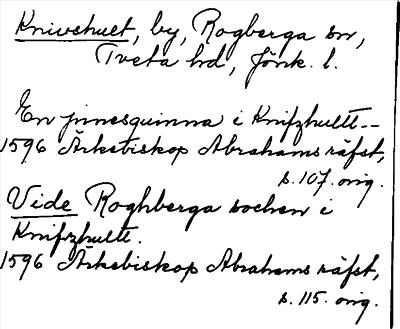 Knivshult, by, Rogberga sn,
Tveta hd, Jönk. l.
En pinesquinna i Knifzhultt--
1596 Ärkebiskop Abrahams räfst,
s. 107. orig.
Vide Roghberga sochen i
Knifzhultt.
1596 Ärkebiskop Abrahams räfst,
s. 115. orig.